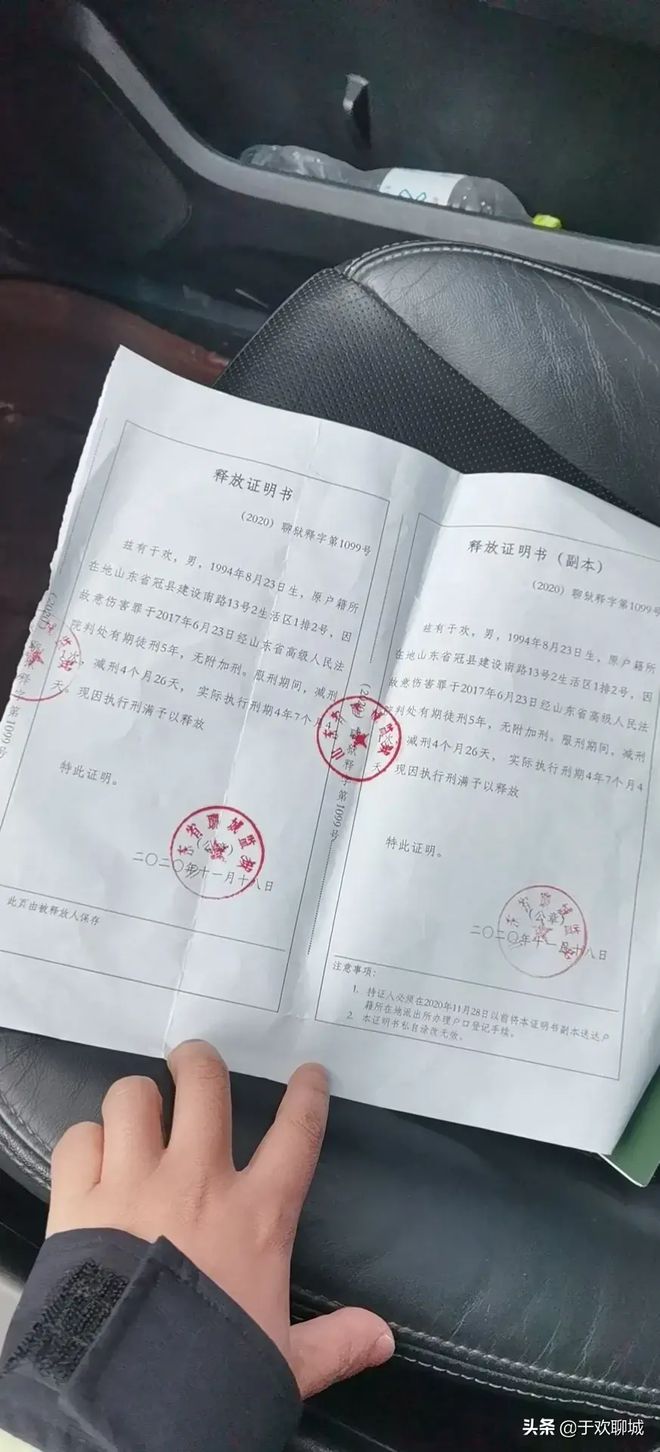 释放证明书
（2020）聊狱释字第1099号
兹有于欢，男，1994年8月23日生，原户籍所
在地山东省冠县建设南路13号2生活区1排2号，因
故意伤害罪于2017年6月23日经山东省高级人民法
院判处有期徒刑5年，无附加刑。服刑期间，减刑
，减刑4个月26天， 实际执行刑期4年7个月4
天。现因执行刑满予以释放
特此证明。
山东省聊城监狱
（公章）
二〇二〇年十一月十八日
此页由被释放人保存
释字第1099号
释放证明书（副本）
（2020）聊狱释字第1099号
兹有于欢，男，1994年8月23日生，原户籍所
在地山东省冠县建设南路13号2生活区1排2号，因
故意伤害罪于2017年6月23日经山东省高级人民法
院判处有期徒刑5年，无附加刑。服刑期间，减刑
，减刑4个月26天， 实际执行刑期4年7个月4
天。现因执行刑满予以释放
特此证明。
（公章）
二〇二〇年十一月十八日
注意事项：
1. 持证人必须在2020年11月28日以前将本证明书副本送达户
籍所在地派出所办理户口登记手续。
2. 本证明书私自涂改无效。
释字第1099号
头条 @于欢聊城